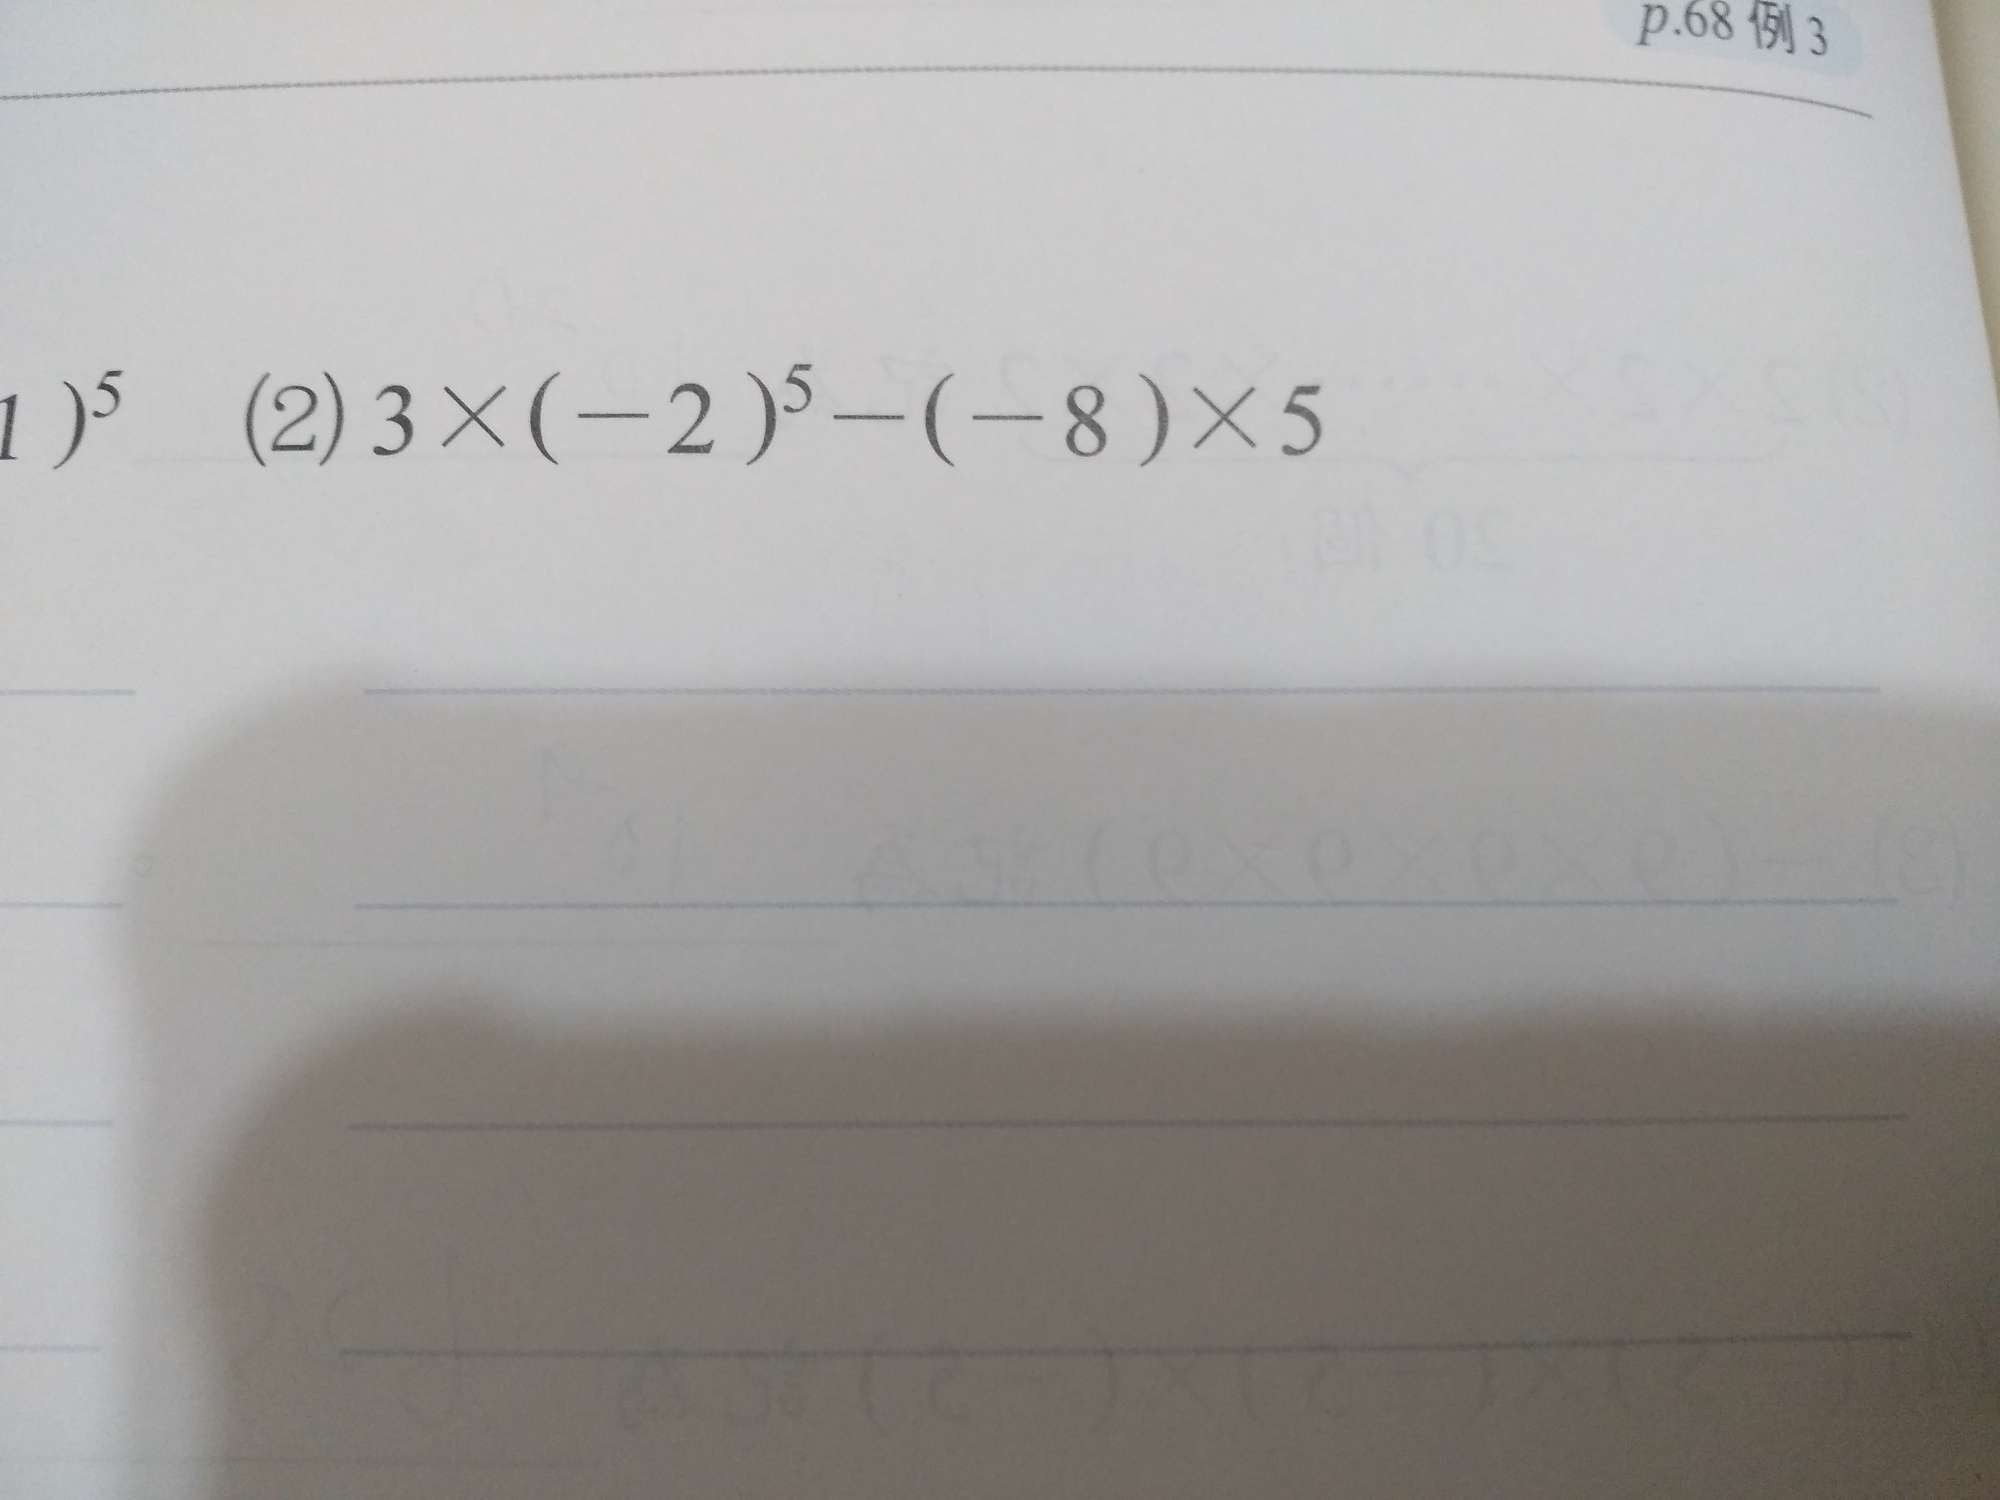 p.68 例3
1)⁵ (2) 3×(−2)⁵−(−8)×5